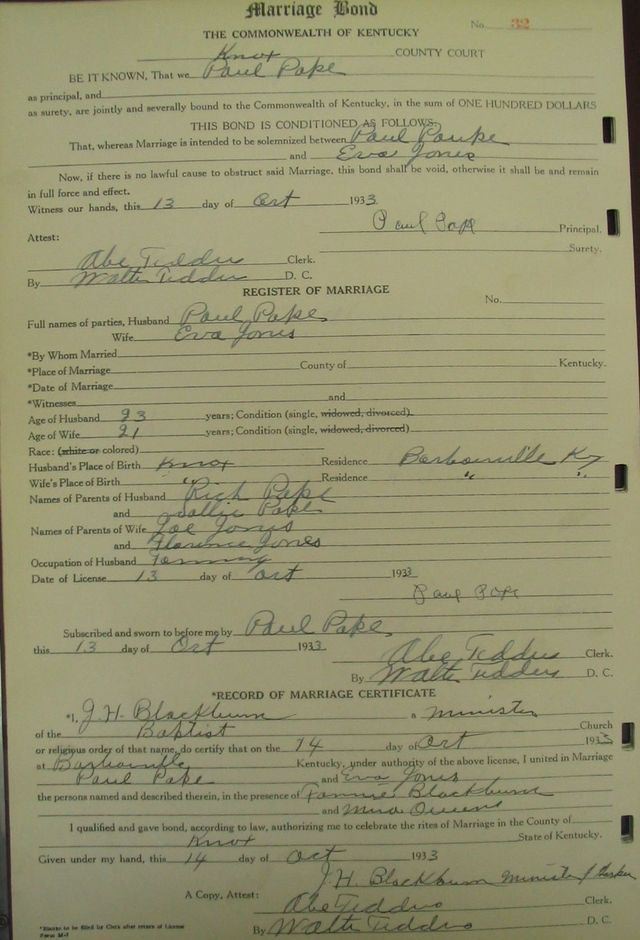 Marriage Bond
No. 32
THE COMMONWEALTH OF KENTUCKY
Knox COUNTY COURT
BE IT KNOWN, That we Paul Pope
as principal, and
as surety, are jointly and severally bound to the Commonwealth of Kentucky, in the sum of ONE HUNDRED DOLLARS
THIS BOND IS CONDITIONED AS FOLLOWS
That, whereas Marriage is intended to be solemnized between Paul Poupe
and Eva Jones
Now, if there is no lawful cause to obstruct said Marriage, this bond shall be void, otherwise it shall be and remain
in full force and effect.
Witness our hands, this 13 day of Oct 1933
Paul Pope Principal.
Attest: Surety.
Abe Tedders Clerk.
By Walter Tedders D. C.
REGISTER OF MARRIAGE
No.
Full names of parties, Husband Paul Pope
Wife Eva Jones
*By Whom Married
*Place of Marriage County of Kentucky.
*Date of Marriage
*Witnesses and
Age of Husband 23 years; Condition (single, widowed, divorced)
Age of Wife 21 years; Condition (single, widowed, divorced)
Race: (white or colored)
Husband's Place of Birth Knox Residence Barbourville Ky
Wife's Place of Birth " Residence " "
Names of Parents of Husband Rich Pope
and Sallie Pope
Names of Parents of Wife Joe Jones
and Florence Jones
Occupation of Husband Farming
Date of License 13 day of Oct 1933
Paul Pope
Subscribed and sworn to before me by Paul Pope
this 13 day of Oct 1933
Abe Tedders Clerk.
By Walter Tedders D. C.
*RECORD OF MARRIAGE CERTIFICATE
*I, J. H. Blackburn a Minister
of the Baptist Church
or religious order of that name, do certify that on the 14 day of Oct 1933
at Barbourville Kentucky, under authority of the above license, I united in Marriage
Paul Pope and Eva Jones
the persons named and described therein, in the presence of Fannie Blackburn
and Mira Owens
I qualified and gave bond, according to law, authorizing me to celebrate the rites of Marriage in the County of
Knox State of Kentucky.
Given under my hand, this 14 day of Oct 1933
J. H. Blackburn Minister
A Copy, Attest: Abe Tedders Clerk.
By Walter Tedders D. C.
*Blanks to be filled by Clerk after return of License
Form M-1